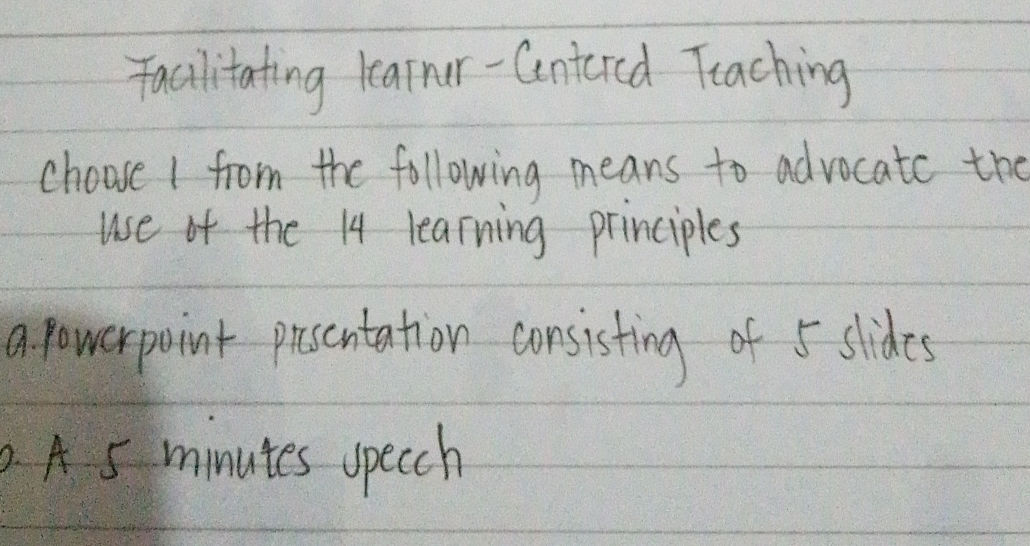 Facilitating learner-Centered Teaching
choose 1 from the following means to advocate the
use of the 14 learning principles
a. Powerpoint presentation consisting of 5 slides
b. A 5 minutes speech